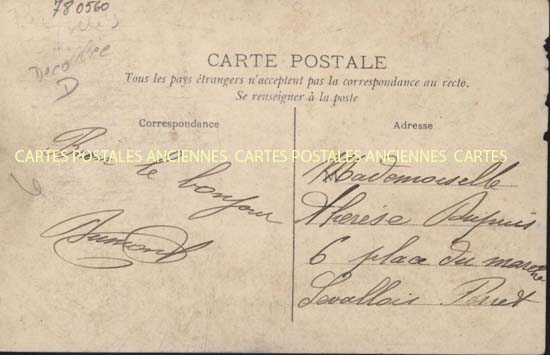 780560
CARTE POSTALE
Tous les pays étrangers n'acceptent pas la correspondance au recto.
Se renseigner à la poste
Correspondance
Adresse
CARTES POSTALES ANCIENNES CARTES POSTALES ANCIENNES CARTES
le bonjour
Dumont
Mademoiselle
Thérèse Dupuis
6 place du marché
Levallois Perret